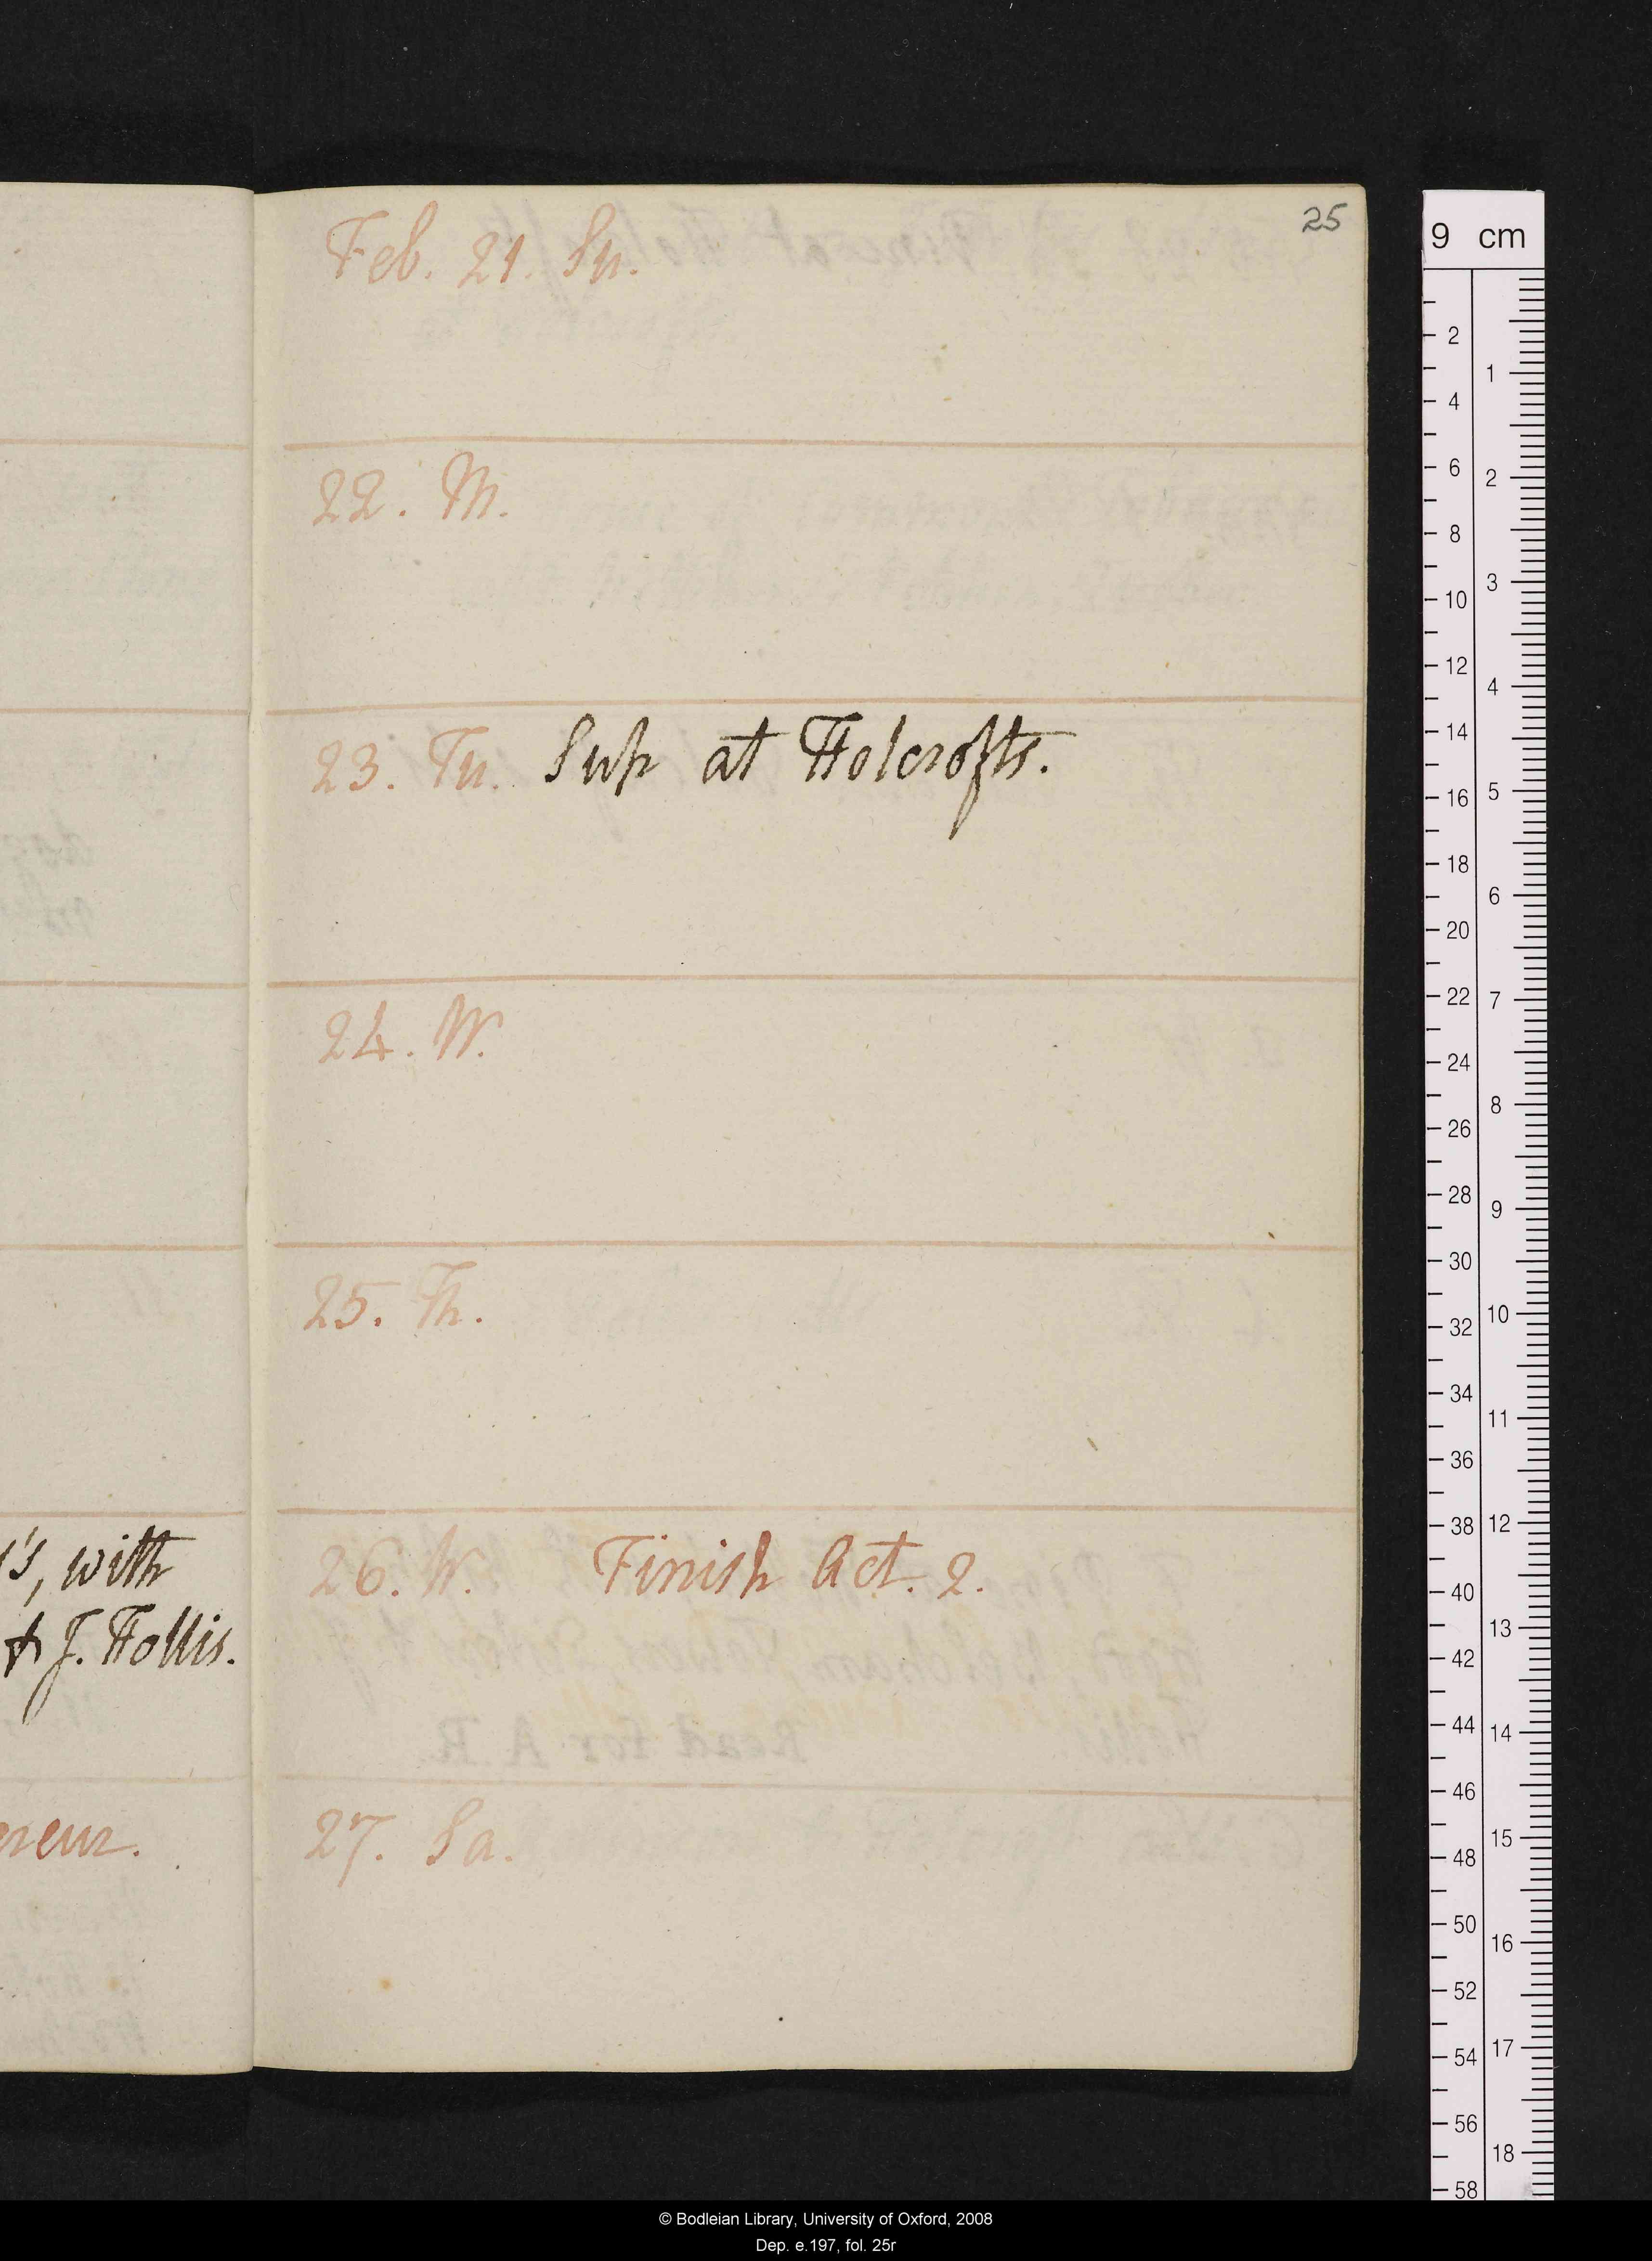 's, with
& J. Hollis.
reur.
25
Feb. 21. Su.
22. M.
23. Tu. Sup at Holcrofts.
24. W.
25. Th.
26. W. Finish Act. 2.
27. Sa.
9 cm
2
4
6
8
10
12
14
16
18
20
22
24
26
28
30
32
34
36
38
40
42
44
46
48
50
52
54
56
58
1
2
3
4
5
6
7
8
9
10
11
12
13
14
15
16
17
18
© Bodleian Library, University of Oxford, 2008
Dep. e.197, fol. 25r